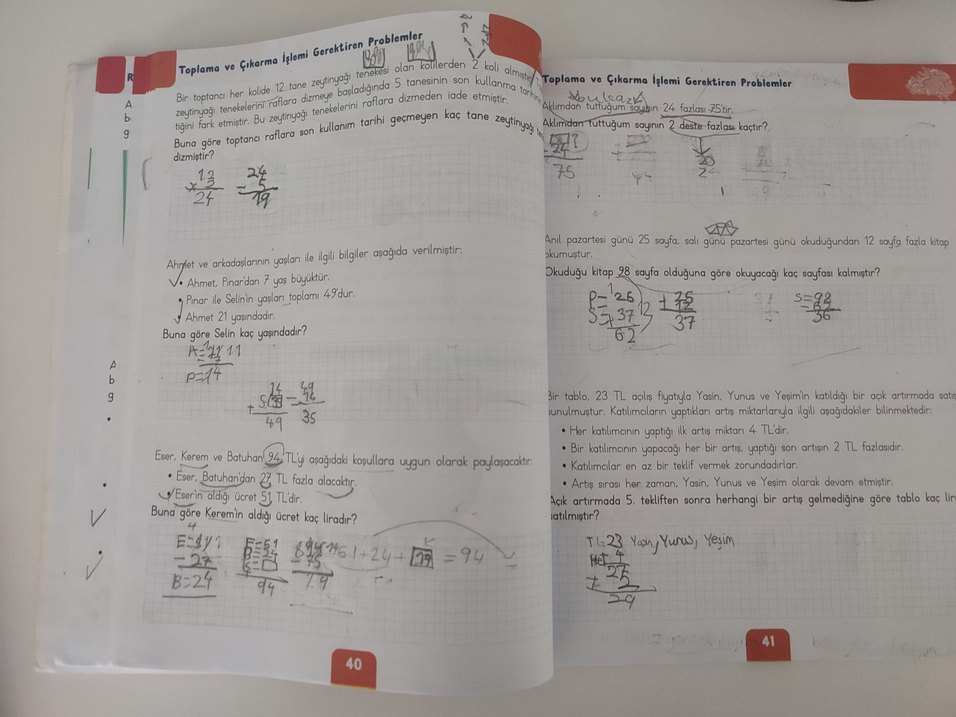 Toplama ve Çıkarma İşlemi Gerektiren Problemler
Bir toptancı her kolide 12 tane zeytinyağı tenekesi olan kolilerden 2 koli almıştır.
zeytinyağı tenekelerini raflara dizmeye başladığında 5 tanesinin son kullanma tarihinin
tiğini fark etmiştir. Bu zeytinyağı tenekelerini raflara dizmeden iade etmiştir.
Buna göre toptancı raflara son kullanım tarihi geçmeyen kaç tane zeytinyağı
dizmiştir?
12
x 2
24
24
- 5
19
Ahmet ve arkadaşlarının yaşları ile ilgili bilgiler aşağıda verilmiştir:
• Ahmet, Pınar'dan 7 yaş büyüktür.
• Pınar ile Selin'in yaşları toplamı 49'dur.
• Ahmet 21 yaşındadır.
Buna göre Selin kaç yaşındadır?
P=14
14
+
49
49
- 14
35
Eser, Kerem ve Batuhan 94 TL'yi aşağıdaki koşullara uygun olarak paylaşacaktır.
• Eser, Batuhan'dan 27 TL fazla alacaktır.
• Eser'in aldığı ücret 51 TL'dir.
Buna göre Kerem'in aldığı ücret kaç liradır?
- 27
B=24
E=51
B=24
K=
+
94
- 75
19
51+24+19=94
40
Toplama ve Çıkarma İşlemi Gerektiren Problemler
Aklımdan tuttuğum sayının 24 fazlası 75'tir.
Aklımdan tuttuğum sayının 2 deste fazlası kaçtır?
?
24
75
20
Anıl pazartesi günü 25 sayfa, salı günü pazartesi günü okuduğundan 12 sayfa fazla kitap
okumuştur.
Okuduğu kitap 98 sayfa olduğuna göre okuyacağı kaç sayfası kalmıştır?
P= 25
S=+37
62
12
25
+ 12
37
S=98
- 62
36
Bir tablo, 23 TL açılış fiyatıyla Yasin, Yunus ve Yeşim'in katıldığı bir açık artırmada
sunulmuştur. Katılımcıların yaptıkları artış miktarlarıyla ilgili aşağıdakiler bilinmektedir:
• Her katılımcının yaptığı ilk artış miktarı 4 TL'dir.
• Bir katılımcının yapacağı her bir artış, yaptığı son artışın 2 TL fazlasıdır.
• Katılımcılar en az bir teklif vermek zorundadırlar.
• Artış sırası her zaman, Yasin, Yunus ve Yeşim olarak devam etmiştir.
Açık artırmada 5. tekliften sonra herhangi bir artış gelmediğine göre tablo kaç
satılmıştır?
23 Yasin, Yunus, Yeşim
4
27
+ 2
29
41